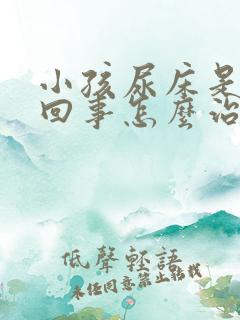 小孩尿床是
回事怎麼治
低聲輕語
未任同意禁止轉載